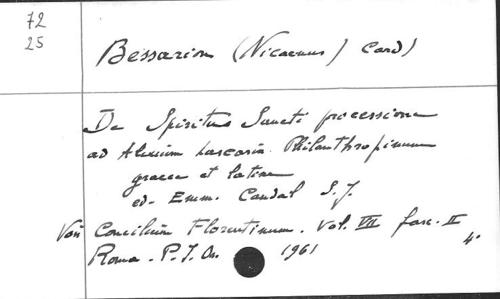 72
25
Bessarion (Nicaenus) Card)
De Spiritus Sancti processione
ad Alexium Lascarin Philanthropinum
graece et latine
ed. Emm. Candal S.J.
Voir Concilium Florentinum. Vol. VII fasc. II
Roma. P.I.Or. 1961 4°